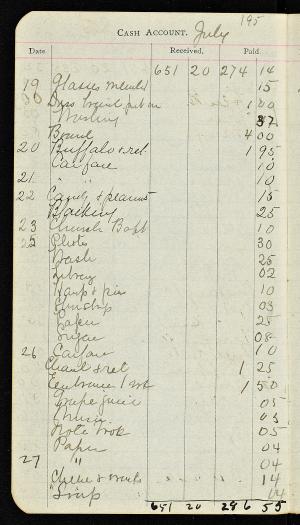 195
CASH ACCOUNT. July
Date Received. Paid.
651 20 274 14
19 Glasses mended 15
20 Dress braid put on 1 00
Washing 37
Board 4 00
20 Buffalo & ret. 1 95
Carfare 10
21 " " 10
22 Candy & peanuts 15
Bathing 25
23 Church Bapt 10
25 Photo 30
Wash 25
Library 02
Harp & pin 10
03
Paper 25
Sugar 08
26 Carfare 10
Chaut & ret 1 25
Entrance 1 wk 1 50
Grape juice 05
Music 05
Note book 05
Paper 04
27 " 04
Cheese & 14
Soup 14
651 20 286 55